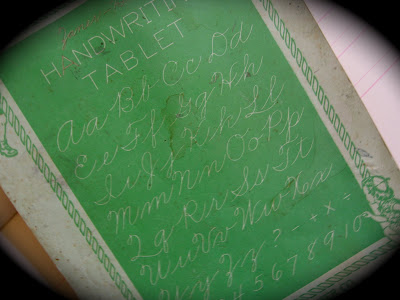 HANDWRITI
TABLET
Aa Bb Cc Dd
Ee Ff Gg Hh
Ii Jj Kk Ll
Mm Nn Oo Pp
Qq Rr Ss Tt
Uu Vv Ww Xx
Yy Zz ? - + x =
4 5 6 7 8 9 10